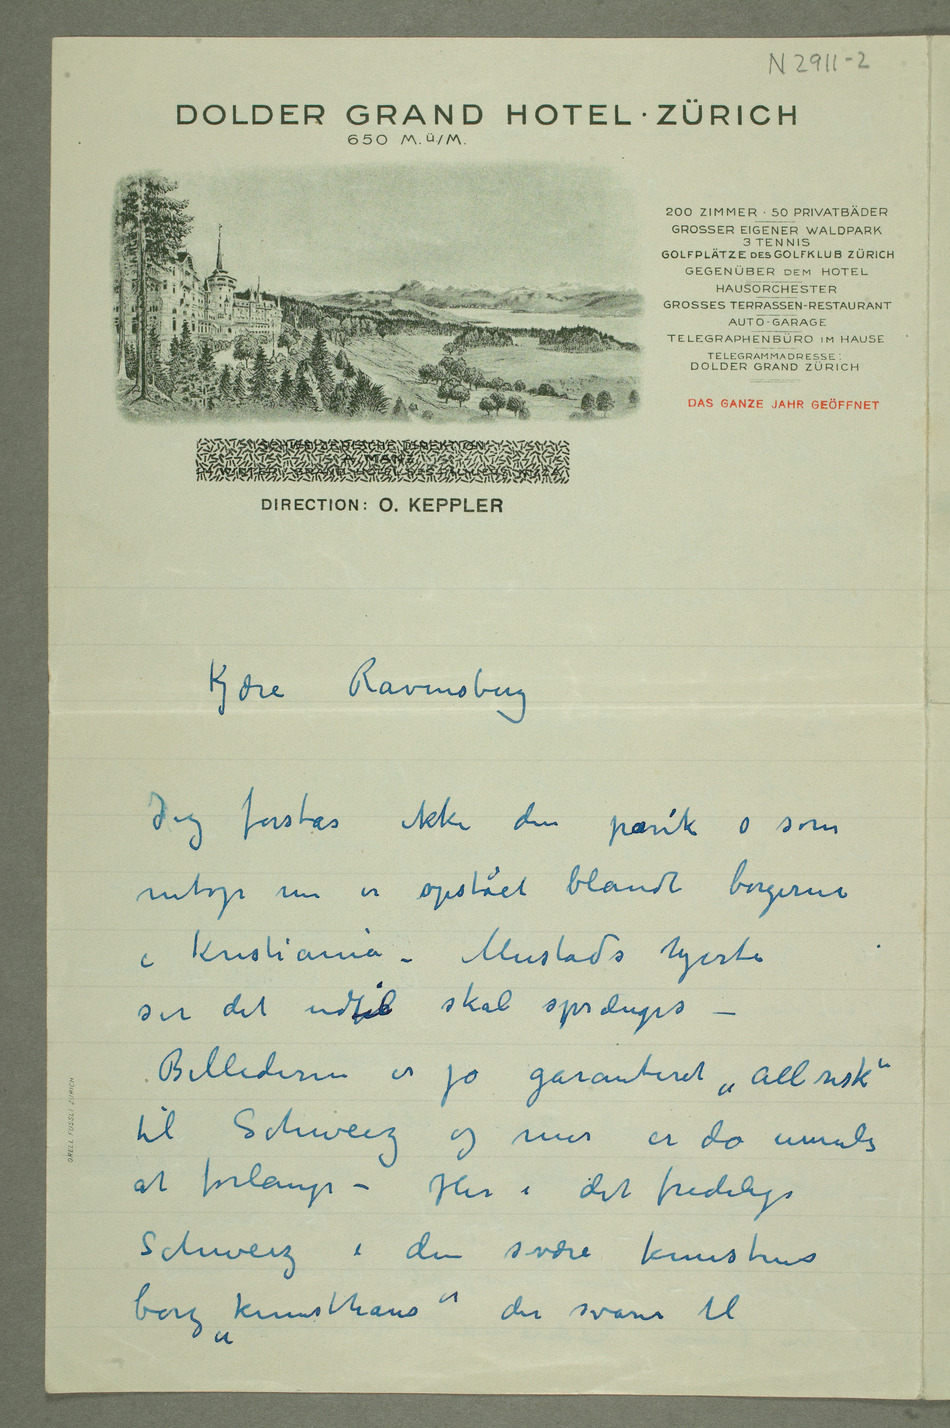 N 2911-2
DOLDER GRAND HOTEL · ZÜRICH
650 M.ü/M.
200 ZIMMER · 50 PRIVATBÄDER
GROSSER EIGENER WALDPARK
3 TENNIS
GOLFPLÄTZE DES GOLFKLUB ZÜRICH
GEGENÜBER DEM HOTEL
HAUSORCHESTER
GROSSES TERRASSEN-RESTAURANT
AUTO-GARAGE
TELEGRAPHENBÜRO IM HAUSE
TELEGRAMMADRESSE:
DOLDER GRAND ZÜRICH
DAS GANZE JAHR GEÖFFNET
SCHWEIZERISCHE DIREKTION
DIRECTION: O. KEPPLER
Kjære Ravensberg
Jeg forstår ikke den panik som
netop nu er opstået blandt borgerne
i Kristiania – Mustads hjerte
ser det ud til skal sprænges –
Billederne er jo garanteret „all risk“
til Schweiz og mer er da umulig
at forlange – Her i det fredelige
Schweiz i den svære kunstens
borg „kunsthaus“ der svarer til
ORELL FÜSSLI ZÜRICH